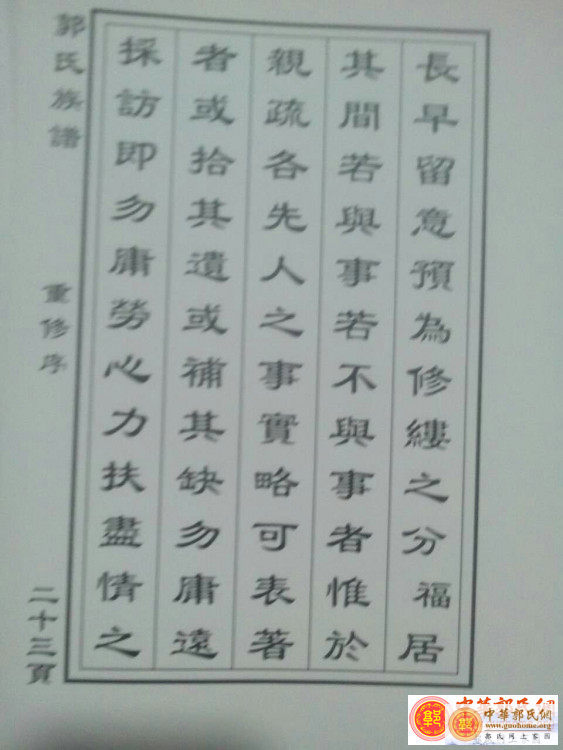 長早留意預為修纓之分福居
其間若與事若不與事者惟於
親疏各先人之事實略可表著
者或拾其遺或補其缺勿庸遠
採訪即勿庸勞心力扶盡情之
郭氏族譜
重修序
二十三頁
中華郭氏網
www.guohome.org
郭氏網上家園